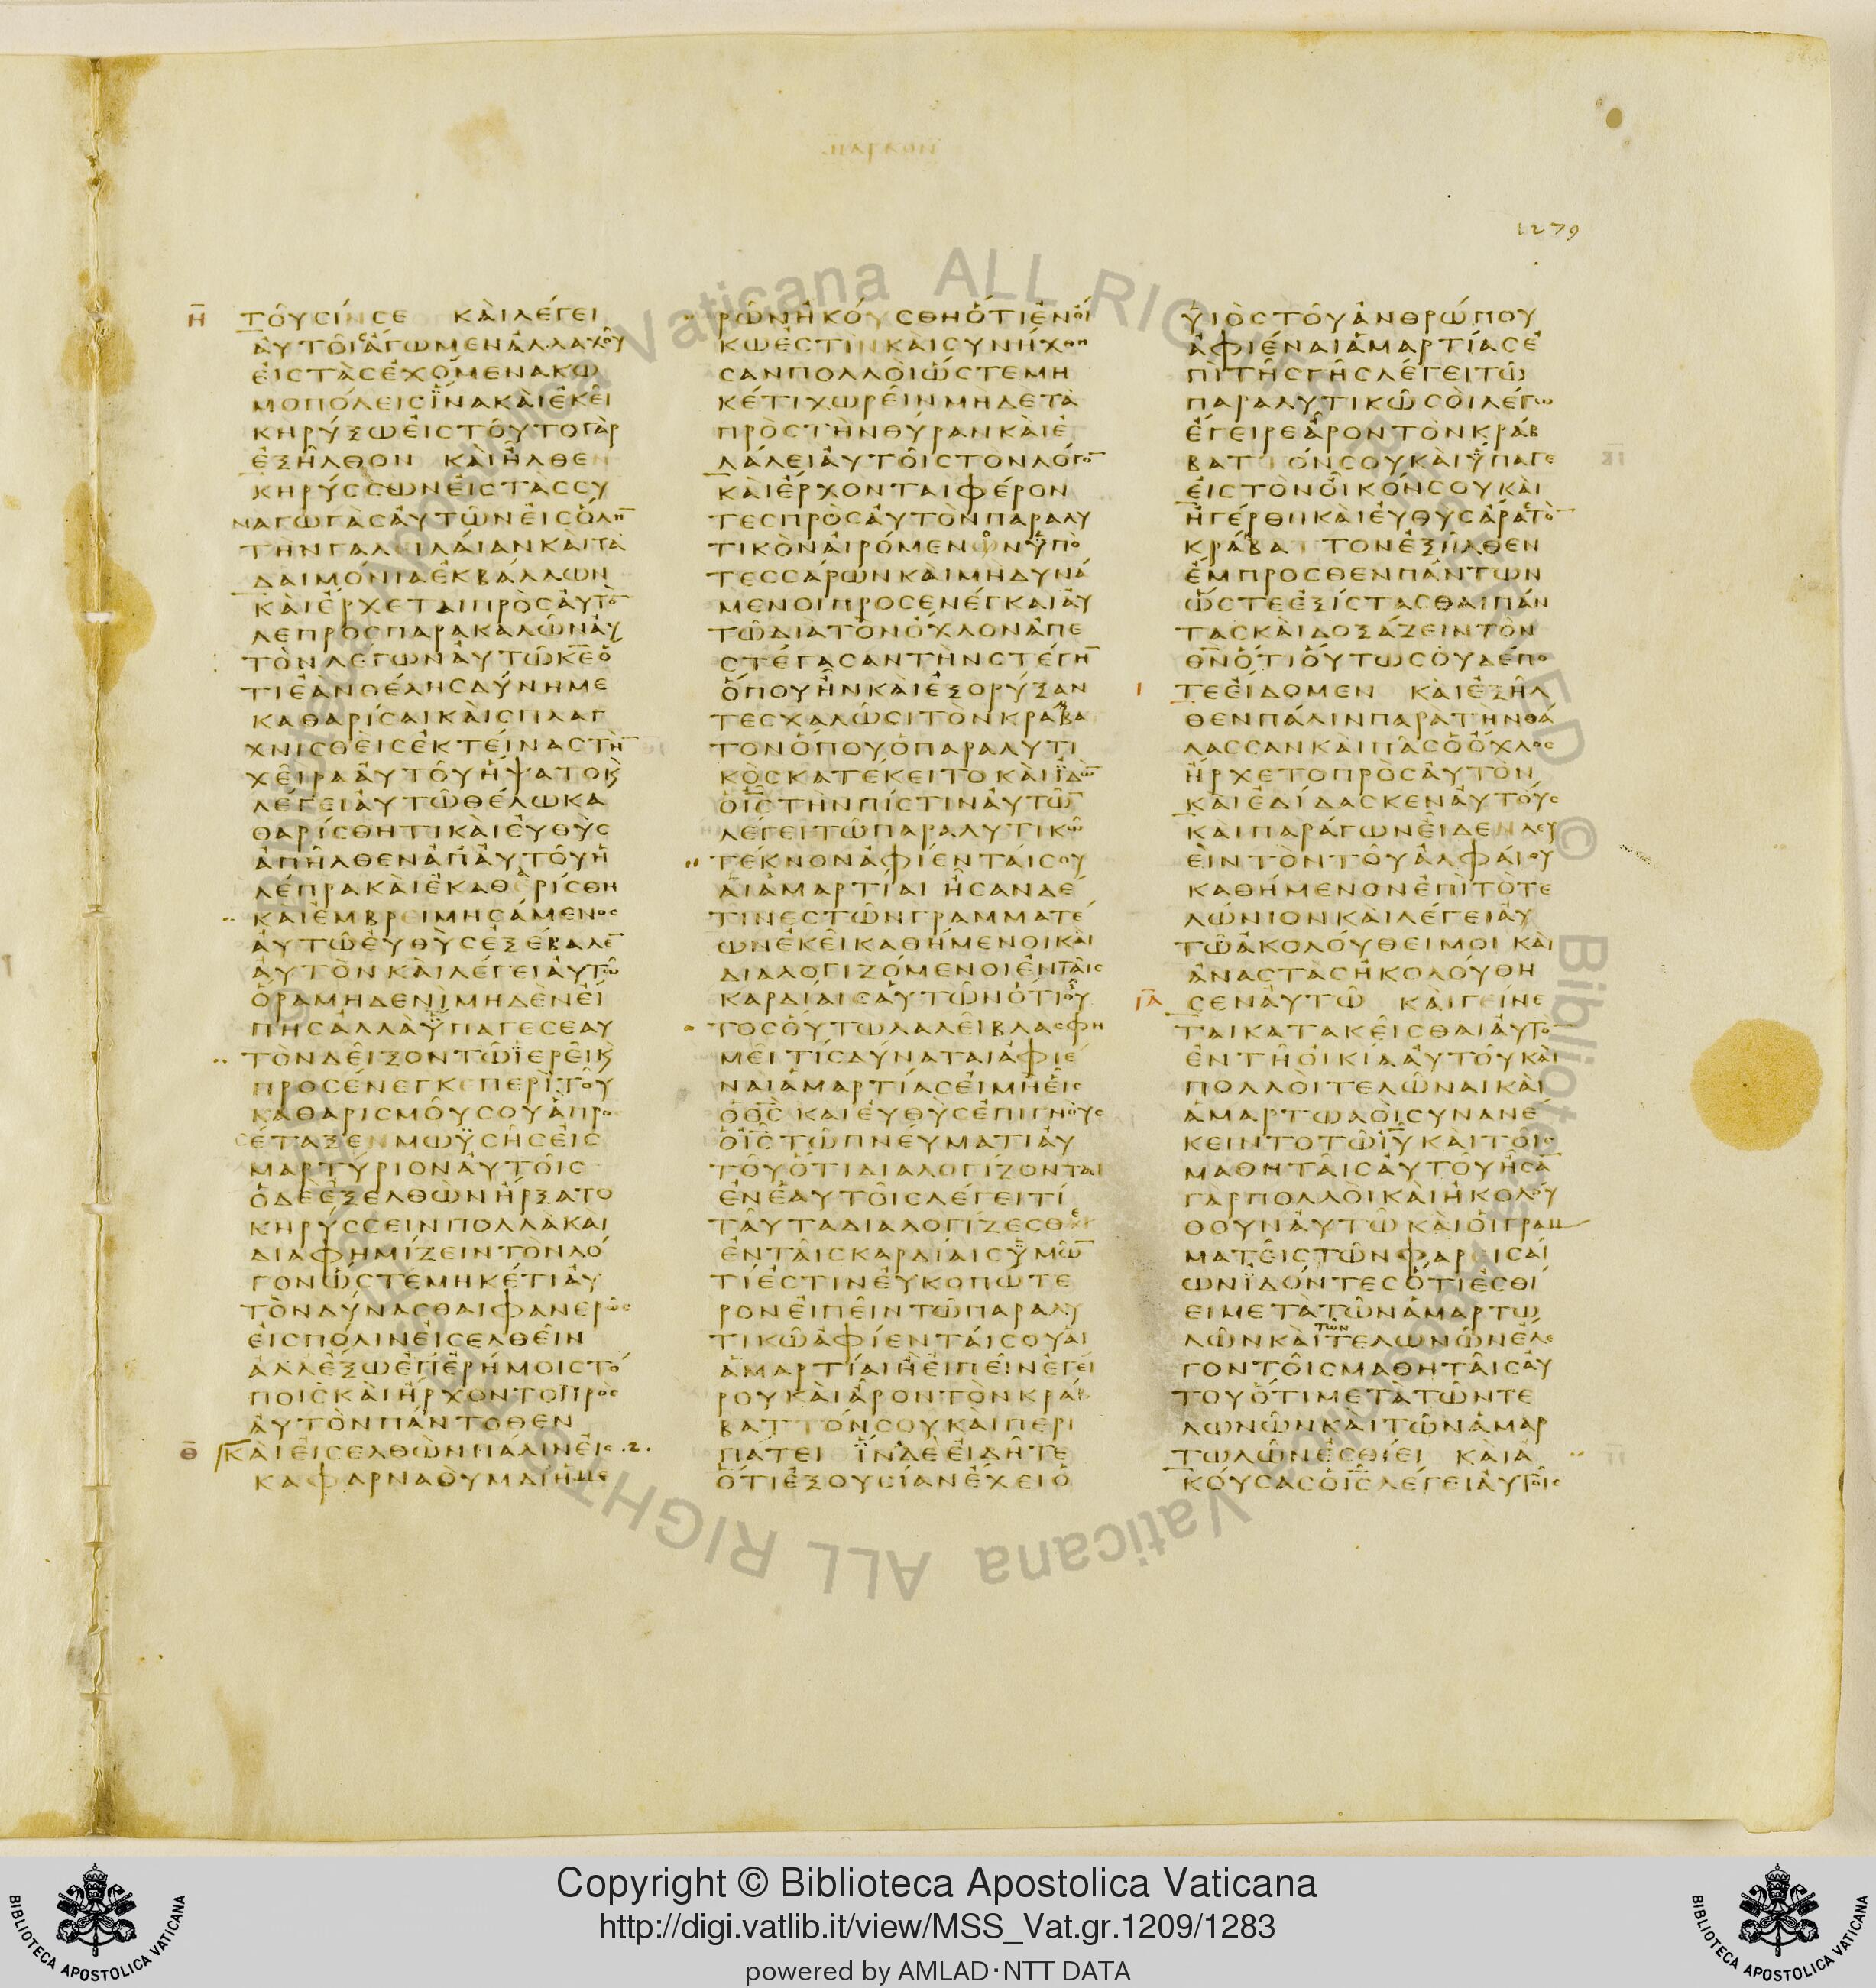 1279
Η̅ ΤΟΥϹΙΝϹΕ ΚΑΙΛΕΓΕΙ
ΑΥΤΟΙϹΑΓΩΜΕΝΑΛΛΑΧΟΥ
ΕΙϹΤΑϹΕΧΟΜΕΝΑϹΚΩ
ΜΟΠΟΛΕΙϹΪΝΑΚΑΙΕΚΕΙ
ΚΗΡΥΞΩΕΙϹΤΟΥΤΟΓΑΡ
ΕΞΗΛΘΟΝ ΚΑΙΗΛΘΕΝ
ΚΗΡΥϹϹΩΝΕΙϹΤΑϹϹΥ
ΝΑΓΩΓΑϹΑΥΤΩΝΕΙϹΟΛΗ̅
ΤΗΝΓΑΛΕΙΛΑΙΑΝΚΑΙΤΑ
ΔΑΙΜΟΝΙΑΕΚΒΑΛΛΩΝ
ΚΑΙΕΡΧΕΤΑΙΠΡΟϹΑΥΤΟ̅
ΛΕΠΡΟϹΠΑΡΑΚΑΛΩΝΑΥ
ΤΟΝΛΕΓΩΝΑΥΤΩΚ̅Ε̅Ο
ΤΙΕΑΝΘΕΛΗϹΔΥΝΗΜΕ
ΚΑΘΑΡΙϹΑΙΚΑΙϹΠΛΑΓ
ΧΝΙϹΘΕΙϹΕΚΤΕΙΝΑϹΤΗ̅
ΧΕΙΡΑΑΥΤΟΥΗΨΑΤΟΚϗ
ΛΕΓΕΙΑΥΤΩΘΕΛΩΚΑ
ΘΑΡΙϹΘΗΤΙΚΑΙΕΥΘΥϹ
ΑΠΗΛΘΕΝΑΠΑΥΤΟΥΗ
ΛΕΠΡΑΚΑΙΕΚΑΘΕΡΙϹΘΗ
ΚΑΙΕΜΒΡΕΙΜΗϹΑΜΕΝΟϹ
ΑΥΤΩΕΥΘΥϹΕΞΕΒΑΛΕ̅
ΑΥΤΟΝΚΑΙΛΕΓΕΙΑΥΤΩ
ΟΡΑΜΗΔΕΝΙΜΗΔΕΝΕΙ
ΠΗϹΑΛΛΑΫΠΑΓΕϹΕΑΥ
ΤΟΝΔΕΙΞΟΝΤΩΪΕΡΕΙϗ
ΠΡΟϹΕΝΕΓΚΕΠΕΡΙΤΟΥ
ΚΑΘΑΡΙϹΜΟΥϹΟΥΑΠΡΟ
ϹΕΤΑΞΕΝΜΩΫϹΗϹΕΙϹ
ΜΑΡΤΥΡΙΟΝΑΥΤΟΙϹ
ΟΔΕΕΞΕΛΘΩΝΗΡΞΑΤΟ
ΚΗΡΥϹϹΕΙΝΠΟΛΛΑΚΑΙ
ΔΙΑΦΗΜΙΖΕΙΝΤΟΝΛΟ
ΓΟΝΩϹΤΕΜΗΚΕΤΙΑΥ
ΤΟΝΔΥΝΑϹΘΑΙΦΑΝΕΡΩϹ
ΕΙϹΠΟΛΙΝΕΙϹΕΛΘΕΙΝ
ΑΛΛΕΞΩΕΠΕΡΗΜΟΙϹΤΟ
ΠΟΙϹΚΑΙΗΡΧΟΝΤΟΠΡΟϹ
ΑΥΤΟΝΠΑΝΤΟΘΕΝ
Θ̅ ΚΑΙΕΙϹΕΛΘΩΝΠΑΛΙΝΕΙϹ .2.
ΚΑΦΑΡΝΑΟΥΜΔΙΗΜΕ
ΡΩΝΗΚΟΥϹΘΗΟΤΙΕΝΟΙ
ΚΩΕϹΤΙΝΚΑΙϹΥΝΗΧΘΗ
ϹΑΝΠΟΛΛΟΙΩϹΤΕΜΗ
ΚΕΤΙΧΩΡΕΙΝΜΗΔΕΤΑ
ΠΡΟϹΤΗΝΘΥΡΑΝΚΑΙΕ
ΛΑΛΕΙΑΥΤΟΙϹΤΟΝΛΟΓΟ̅
ΚΑΙΕΡΧΟΝΤΑΙΦΕΡΟΝ
ΤΕϹΠΡΟϹΑΥΤΟΝΠΑΡΑΛΥ
ΤΙΚΟΝΑΙΡΟΜΕΝΟΝΫΠΟ
ΤΕϹϹΑΡΩΝΚΑΙΜΗΔΥΝΑ
ΜΕΝΟΙΠΡΟϹΕΝΕΓΚΑΙΑΥ
ΤΩΔΙΑΤΟΝΟΧΛΟΝΑΠΕ
ϹΤΕΓΑϹΑΝΤΗΝϹΤΕΓΗ̅
ΟΠΟΥΗΝΚΑΙΕΞΟΡΥΞΑΝ
ΤΕϹΧΑΛΩϹΙΤΟΝΚΡΑΒΑ
ΤΟΝΟΠΟΥΟΠΑΡΑΛΥΤΙ
ΚΟϹΚΑΤΕΚΕΙΤΟΚΑΙΪΔΩ̅
ΟΙ̅Ϲ̅ΤΗΝΠΙϹΤΙΝΑΥΤΩ̅
ΛΕΓΕΙΤΩΠΑΡΑΛΥΤΙΚΩ
ΤΕΚΝΟΝΑΦΙΕΝΤΑΙϹΟΥ
ΑΙΑΜΑΡΤΙΑΙ ΗϹΑΝΔΕ
ΤΙΝΕϹΤΩΝΓΡΑΜΜΑΤΕ
ΩΝΕΚΕΙΚΑΘΗΜΕΝΟΙΚΑΙ
ΔΙΑΛΟΓΙΖΟΜΕΝΟΙΕΝΤΑΙϹ
ΚΑΡΔΙΑΙϹΑΥΤΩΝΟΤΙΟΥ
ΤΟϹΟΥΤΩΛΑΛΕΙΒΛΑϹΦΗ
ΜΕΙΤΙϹΔΥΝΑΤΑΙΑΦΙΕ
ΝΑΙΑΜΑΡΤΙΑϹΕΙΜΗΕΙϹ
ΟΘ̅Ϲ̅ ΚΑΙΕΥΘΥϹΕΠΙΓΝΟΥϹ
ΟΙ̅Ϲ̅ΤΩΠΝΕΥΜΑΤΙΑΥ
ΤΟΥΟΤΙΔΙΑΛΟΓΙΖΟΝΤΑΙ
ΕΝΕΑΥΤΟΙϹΛΕΓΕΙΤΙ
ΤΑΥΤΑΔΙΑΛΟΓΙΖΕϹΘΕ
ΕΝΤΑΙϹΚΑΡΔΙΑΙϹΫΜΩ̅
ΤΙΕϹΤΙΝΕΥΚΟΠΩΤΕ
ΡΟΝΕΙΠΕΙΝΤΩΠΑΡΑΛΥ
ΤΙΚΩΑΦΙΕΝΤΑΙϹΟΥΑΙ
ΑΜΑΡΤΙΑΙΗΕΙΠΕΙΝΕΓΕΙ
ΡΟΥΚΑΙΑΡΟΝΤΟΝΚΡΑΒ
ΒΑΤΤΟΝϹΟΥΚΑΙΠΕΡΙ
ΠΑΤΕΙ ΪΝΑΔΕΕΙΔΗΤΕ
ΟΤΙΕΞΟΥϹΙΑΝΕΧΕΙΟ
ΥΙΟϹΤΟΥΑΝΘΡΩΠΟΥ
ΑΦΙΕΝΑΙΑΜΑΡΤΙΑϹΕ
ΠΙΤΗϹΓΗϹΛΕΓΕΙΤΩ
ΠΑΡΑΛΥΤΙΚΩϹΟΙΛΕΓΩ
ΕΓΕΙΡΕΑΡΟΝΤΟΝΚΡΑΒ
ΒΑΤΤΟΝϹΟΥΚΑΙΫΠΑΓΕ
ΕΙϹΤΟΝΟΙΚΟΝϹΟΥΚΑΙ
ΗΓΕΡΘΗΚΑΙΕΥΘΥϹΑΡΑϹΤΟ̅
ΚΡΑΒΑΤΤΟΝΕΞΗΛΘΕΝ
ΕΜΠΡΟϹΘΕΝΠΑΝΤΩΝ
ΩϹΤΕΕΞΙϹΤΑϹΘΑΙΠΑΝ
ΤΑϹΚΑΙΔΟΞΑΖΕΙΝΤΟΝ
Θ̅Ν̅ΟΤΙΟΥΤΩϹΟΥΔΕΠΟ
Ι ΤΕΕΙΔΟΜΕΝ ΚΑΙΕΞΗΛ
ΘΕΝΠΑΛΙΝΠΑΡΑΤΗΝΘΑ
ΛΑϹϹΑΝΚΑΙΠΑϹΟΟΧΛΟϹ
ΗΡΧΕΤΟΠΡΟϹΑΥΤΟΝ
ΚΑΙΕΔΙΔΑϹΚΕΝΑΥΤΟΥϹ
ΚΑΙΠΑΡΑΓΩΝΕΙΔΕΝΛΕΥ
ΕΙΝΤΟΝΤΟΥΑΛΦΑΙΟΥ
ΚΑΘΗΜΕΝΟΝΕΠΙΤΟΤΕ
ΛΩΝΙΟΝΚΑΙΛΕΓΕΙΑΥ
ΤΩΑΚΟΛΟΥΘΕΙΜΟΙ ΚΑΙ
ΑΝΑϹΤΑϹΗΚΟΛΟΥΘΗ
ΙΑ̅ ϹΕΝΑΥΤΩ ΚΑΙΓΕΙΝΕ
ΤΑΙΚΑΤΑΚΕΙϹΘΑΙΑΥΤΟ̅
ΕΝΤΗΟΙΚΙΑΑΥΤΟΥΚΑΙ
ΠΟΛΛΟΙΤΕΛΩΝΑΙΚΑΙ
ΑΜΑΡΤΩΛΟΙϹΥΝΑΝΕ
ΚΕΙΝΤΟΤΩΙ̅Υ̅ΚΑΙΤΟΙϹ
ΜΑΘΗΤΑΙϹΑΥΤΟΥΗϹΑ̅
ΓΑΡΠΟΛΛΟΙΚΑΙΗΚΟΛΟΥ
ΘΟΥΝΑΥΤΩΚΑΙΟΙΓΡΑΜ
ΜΑΤΕΙϹΤΩΝΦΑΡΕΙϹΑΙ
ΩΝΪΔΟΝΤΕϹΟΤΙΕϹΘΙ
ΕΙΜΕΤΑΤΩΝΑΜΑΡΤΩ
ΛΩΝΚΑΙτωνΤΕΛΩΝΩΝΕΛΕ
ΓΟΝΤΟΙϹΜΑΘΗΤΑΙϹΑΥ
ΤΟΥΟΤΙΜΕΤΑΤΩΝΤΕ
ΛΩΝΩΝΚΑΙΤΩΝΑΜΑΡ
ΤΩΛΩΝΕϹΘΙΕΙ ΚΑΙΑ
ΚΟΥϹΑϹΟΙ̅Ϲ̅ΛΕΓΕΙΑΥΤΟΙϹ
Vaticana ALL RIGHTS RESERVED © Biblioteca Apostolica Vaticana ALL RIGHTS RESERVED © Biblioteca Apostolica
BIBLIOTECA APOSTOLICA VATICANA
Copyright © Biblioteca Apostolica Vaticana
http://digi.vatlib.it/view/MSS_Vat.gr.1209/1283
powered by AMLAD·NTT DATA
BIBLIOTECA APOSTOLICA VATICANA